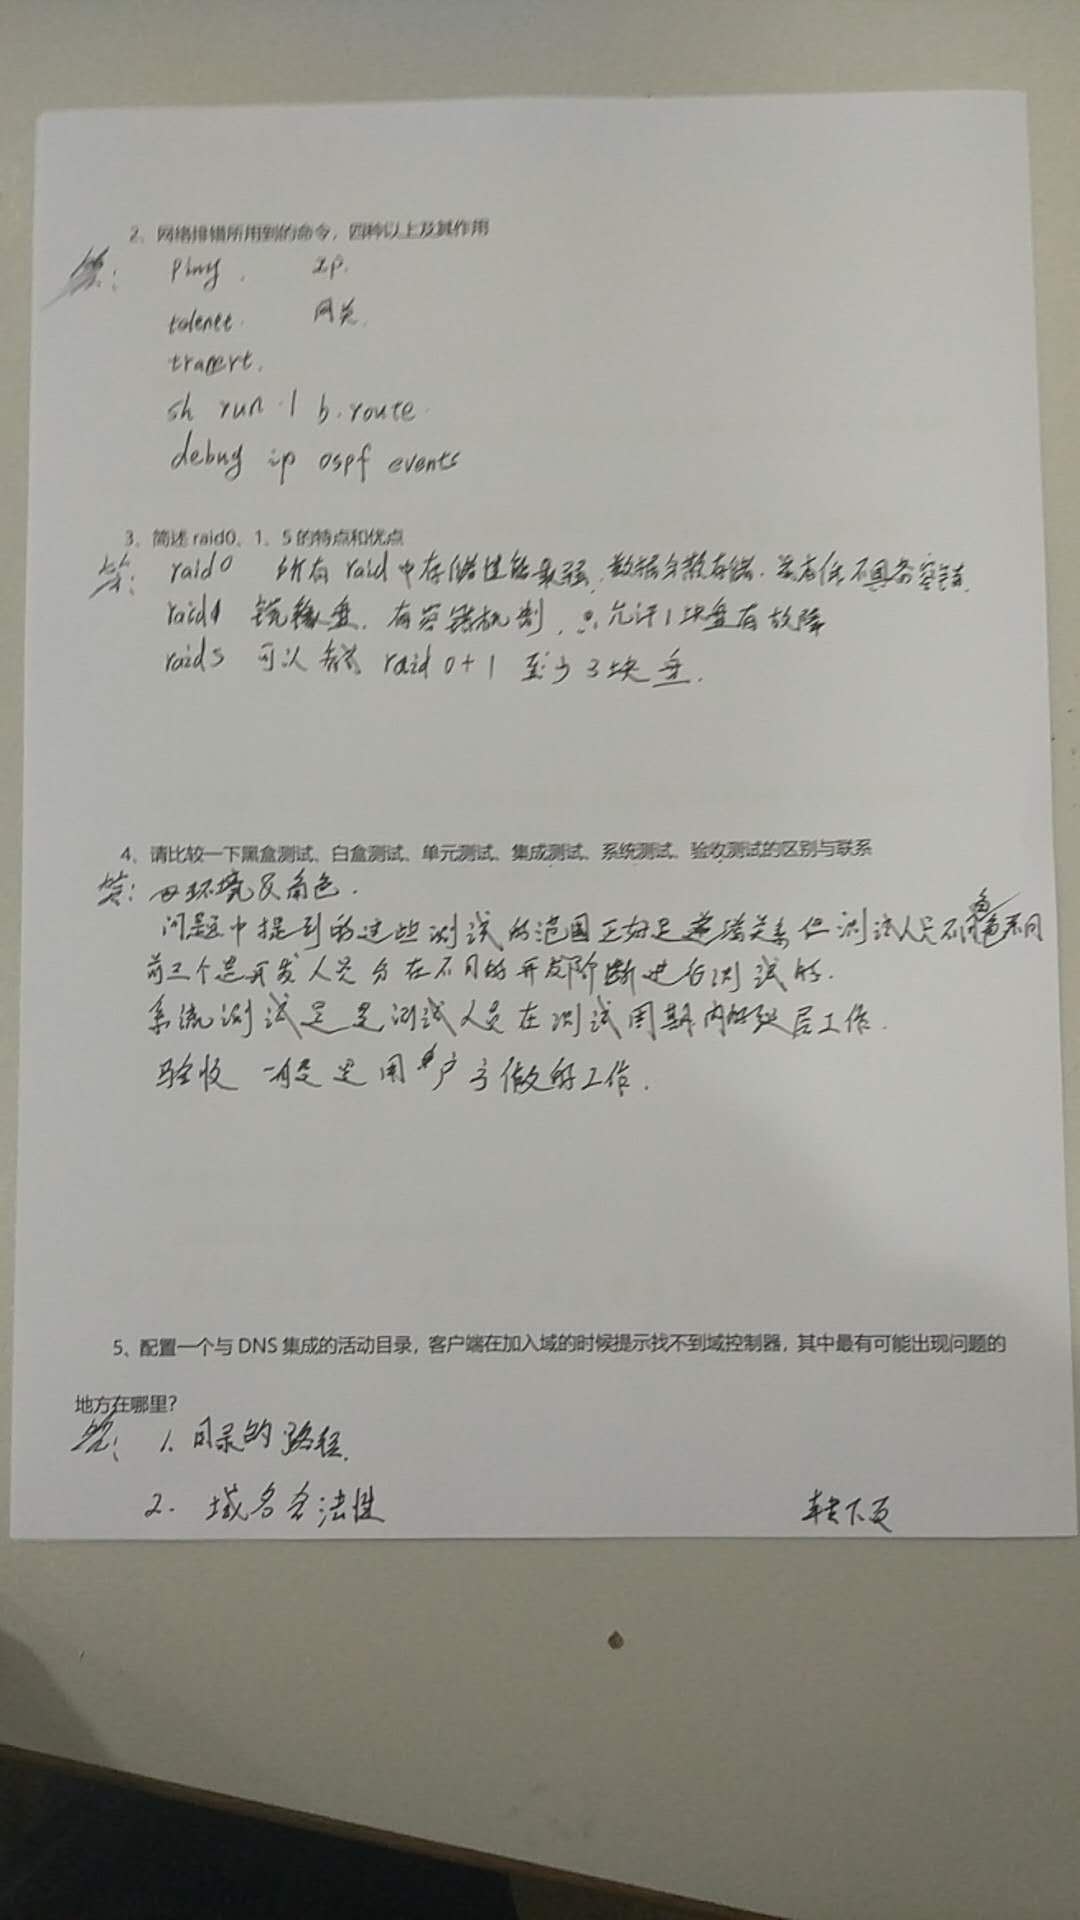 2、网络排错所用到的命令，四种以上及其作用
答： ping . ip.
talentt. 网关.
tracert.
sh run | b.route.
debug ip ospf events
3、简述 raid0、1、5 的特点和优点
答： raid0 所有 raid 中存储性能最强，数据分散存储. 不具备容错.
raid1 镜像盘. 有容错机制，只允许1块盘有故障
raid5 可以 raid 0+1 至少 3块盘.
4、请比较一下黑盒测试、白盒测试、单元测试、集成测试、系统测试、验收测试的区别与联系
答：环境及角色.
问题中提到的这些测试的范围正好是递增关系但测试人员不同角色不同
前三个是开发人员分在不同的开发阶断进行测试的.
系统测试是是测试人员在测试周期内的工作.
验收一般是用户方做的工作.
5、配置一个与 DNS 集成的活动目录，客户端在加入域的时候提示找不到域控制器，其中最有可能出现问题的
地方在哪里？
答： 1. 目录的路径.
2. 域名合法性
转下页